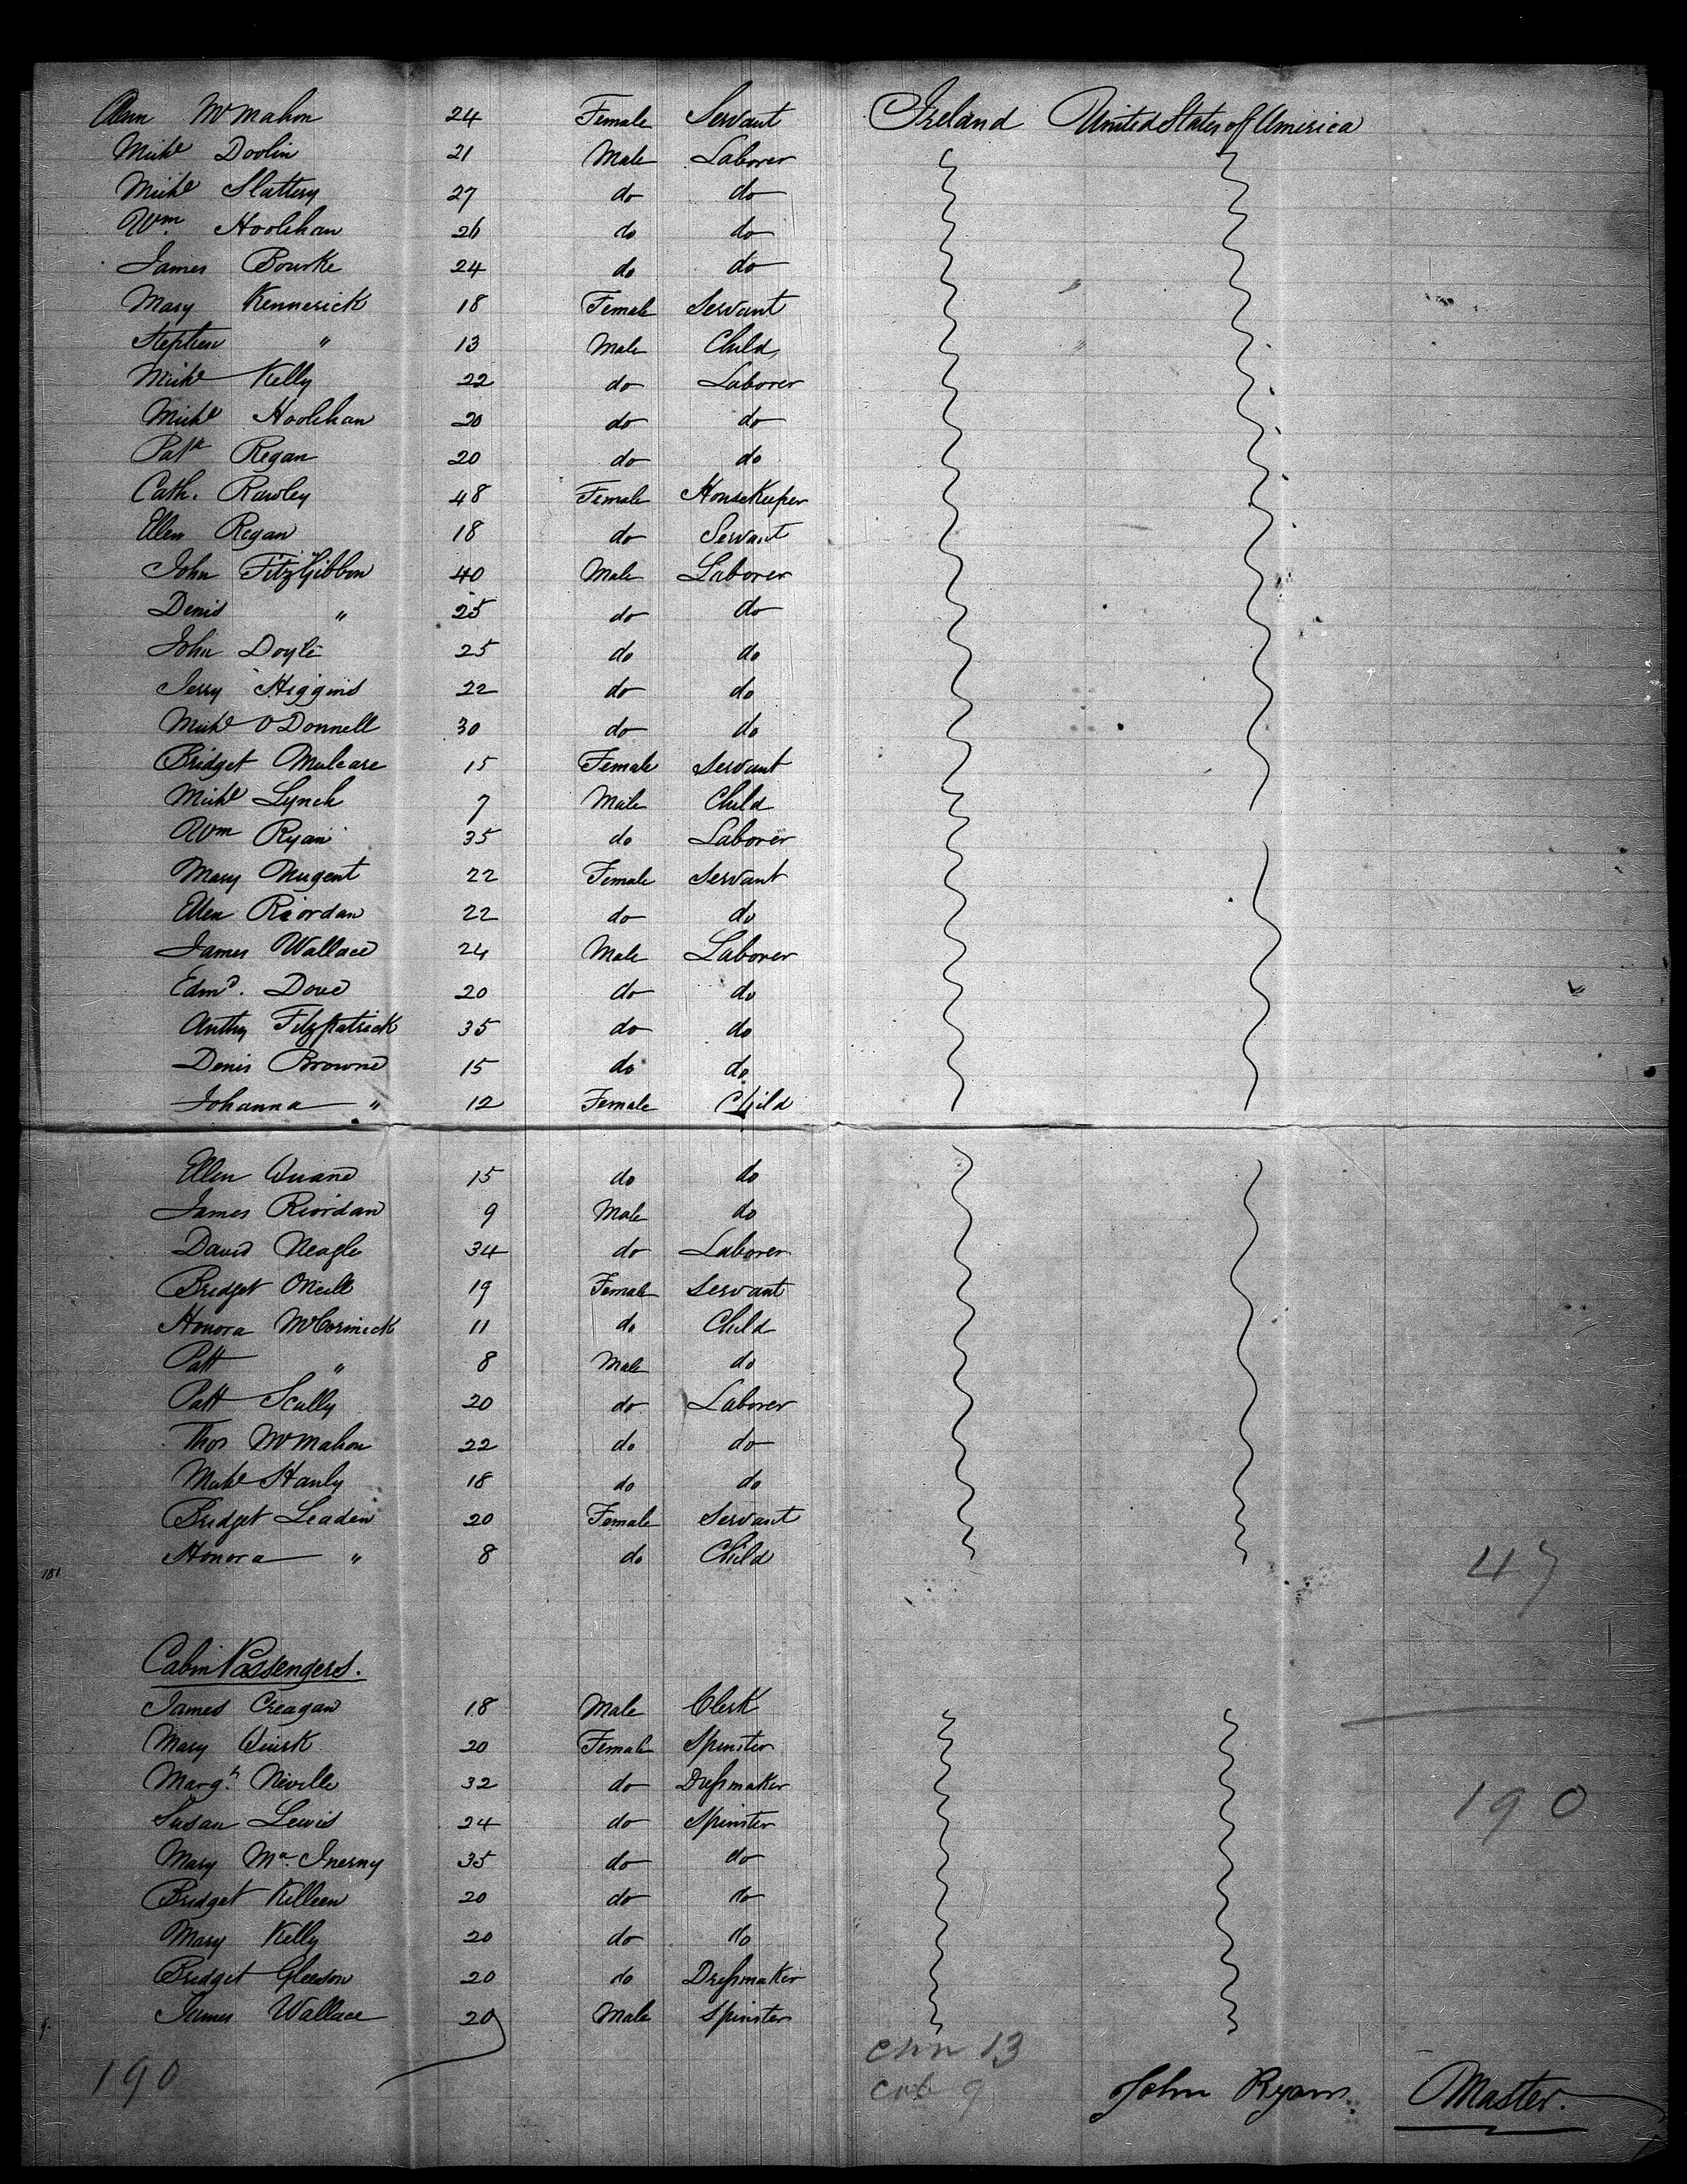 Ann McMahon 24 Female Servant Ireland United States of America
Michl Doolin 21 Male Laborer
Michl Slattery 27 do do
Wm. Hoolihan 26 do do
James Bourke 24 do do
Mary Kennerick 18 Female Servant
Stephen " 13 Male Child
Michl Kelly 22 do Laborer
Michl Hoolihan 20 do do
Patk Regan 20 do do
Cath. Rawley 48 Female HouseKeeper
Ellen Regan 18 do Servant
John FitzGibbon 40 Male Laborer
Denis " 25 do do
John Doyle 25 do do
Jerry Higgins 22 do do
Michl ODonnell 30 do do
Bridget Mulcare 15 Female Servant
Michl Lynch 7 Male Child
Wm Ryan 35 do Laborer
Mary Nugent 22 Female Servant
Ellen Riordan 22 do do
James Wallace 24 Male Laborer
Edmd. Dove 20 do do
Anthy Fitzpatrick 35 do do
Denis Browne 15 do do
Johanna " 12 Female Child
Ellen Quane 15 do do
James Riordan 9 Male do
David Neagle 34 do Laborer
Bridget ONeill 19 Female Servant
Honora McCormick 11 do Child
Patt " 8 Male do
Patt Scully 20 do Laborer
Thos McMahon 22 do do
Michl Hanly 18 do do
Bridget Leaden 20 Female Servant
Honora " 8 do Child
181 47
Cabin Passengers.
James Creagan 18 Male Clerk
Mary Quirk 20 Female Spinster
Margt. Neville 32 do Dressmaker 190
Susan Lewis 24 do Spinster
Mary Mc. Inerny 35 do do
Bridget Killeen 20 do do
Mary Kelly 20 do do
Bridget Gleeson 20 do Dressmaker
James Wallace 20 Male Spinster
9.
190 13
cab 9 John Ryan. Master.